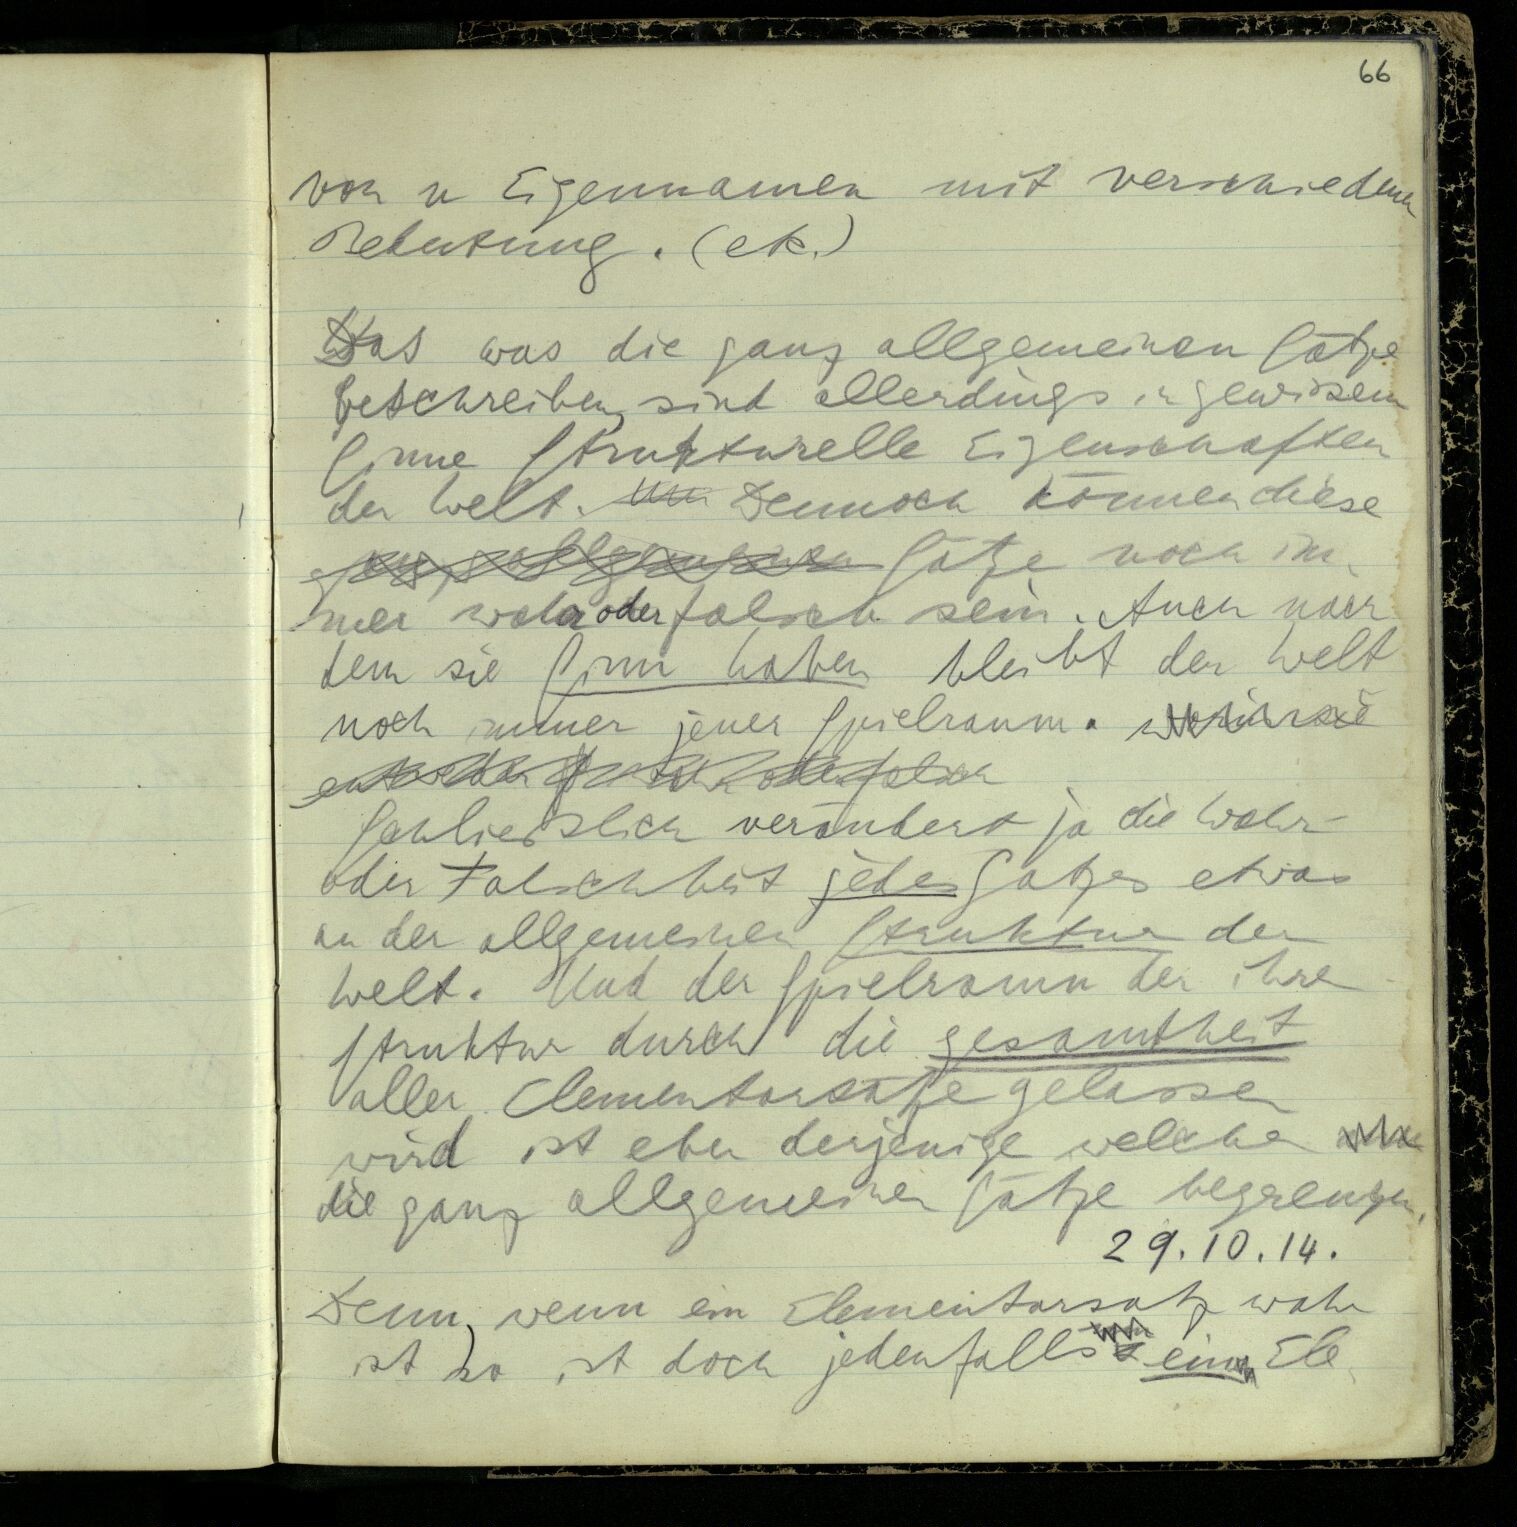 66
von n Eigennamen mit verschiedener
Bedeutung. (etc.)
Das was die ganz allgemeinen Sätze
beschreiben, sind allerdings in gewissem
Sinne strukturelle Eigenschaften
der Welt. Dennoch können diese
ganz allgemeinen Sätze noch im-
mer wahr oder falsch sein. Auch nach
dem sie Sinn haben bleibt der Welt
noch immer jener Spielraum. worin sie
entweder wahr oder falsch
Schliesslich verändert ja die Wahr-
oder Falschheit jedes Satzes etwas
an der allgemeinen Struktur der
Welt. Und der Spielraum der ihrer
Struktur durch die Gesamtheit
aller Elementarsätze gelassen
wird ist eben derjenige welchen
die ganz allgemeinen Sätze begrenzen.
29.10.14.
Denn, wenn ein Elementarsatz wahr
ist so ist doch jedenfalls ein Ele-